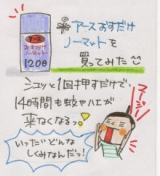 アース
おすだけ
ノーマット
120日
アースおすだけ
ノーマットを
買ってみた
シュッと1回押すだけで
14時間も蚊やハエが
来なくなるっ
いったいどんな
しくみなんだっ!